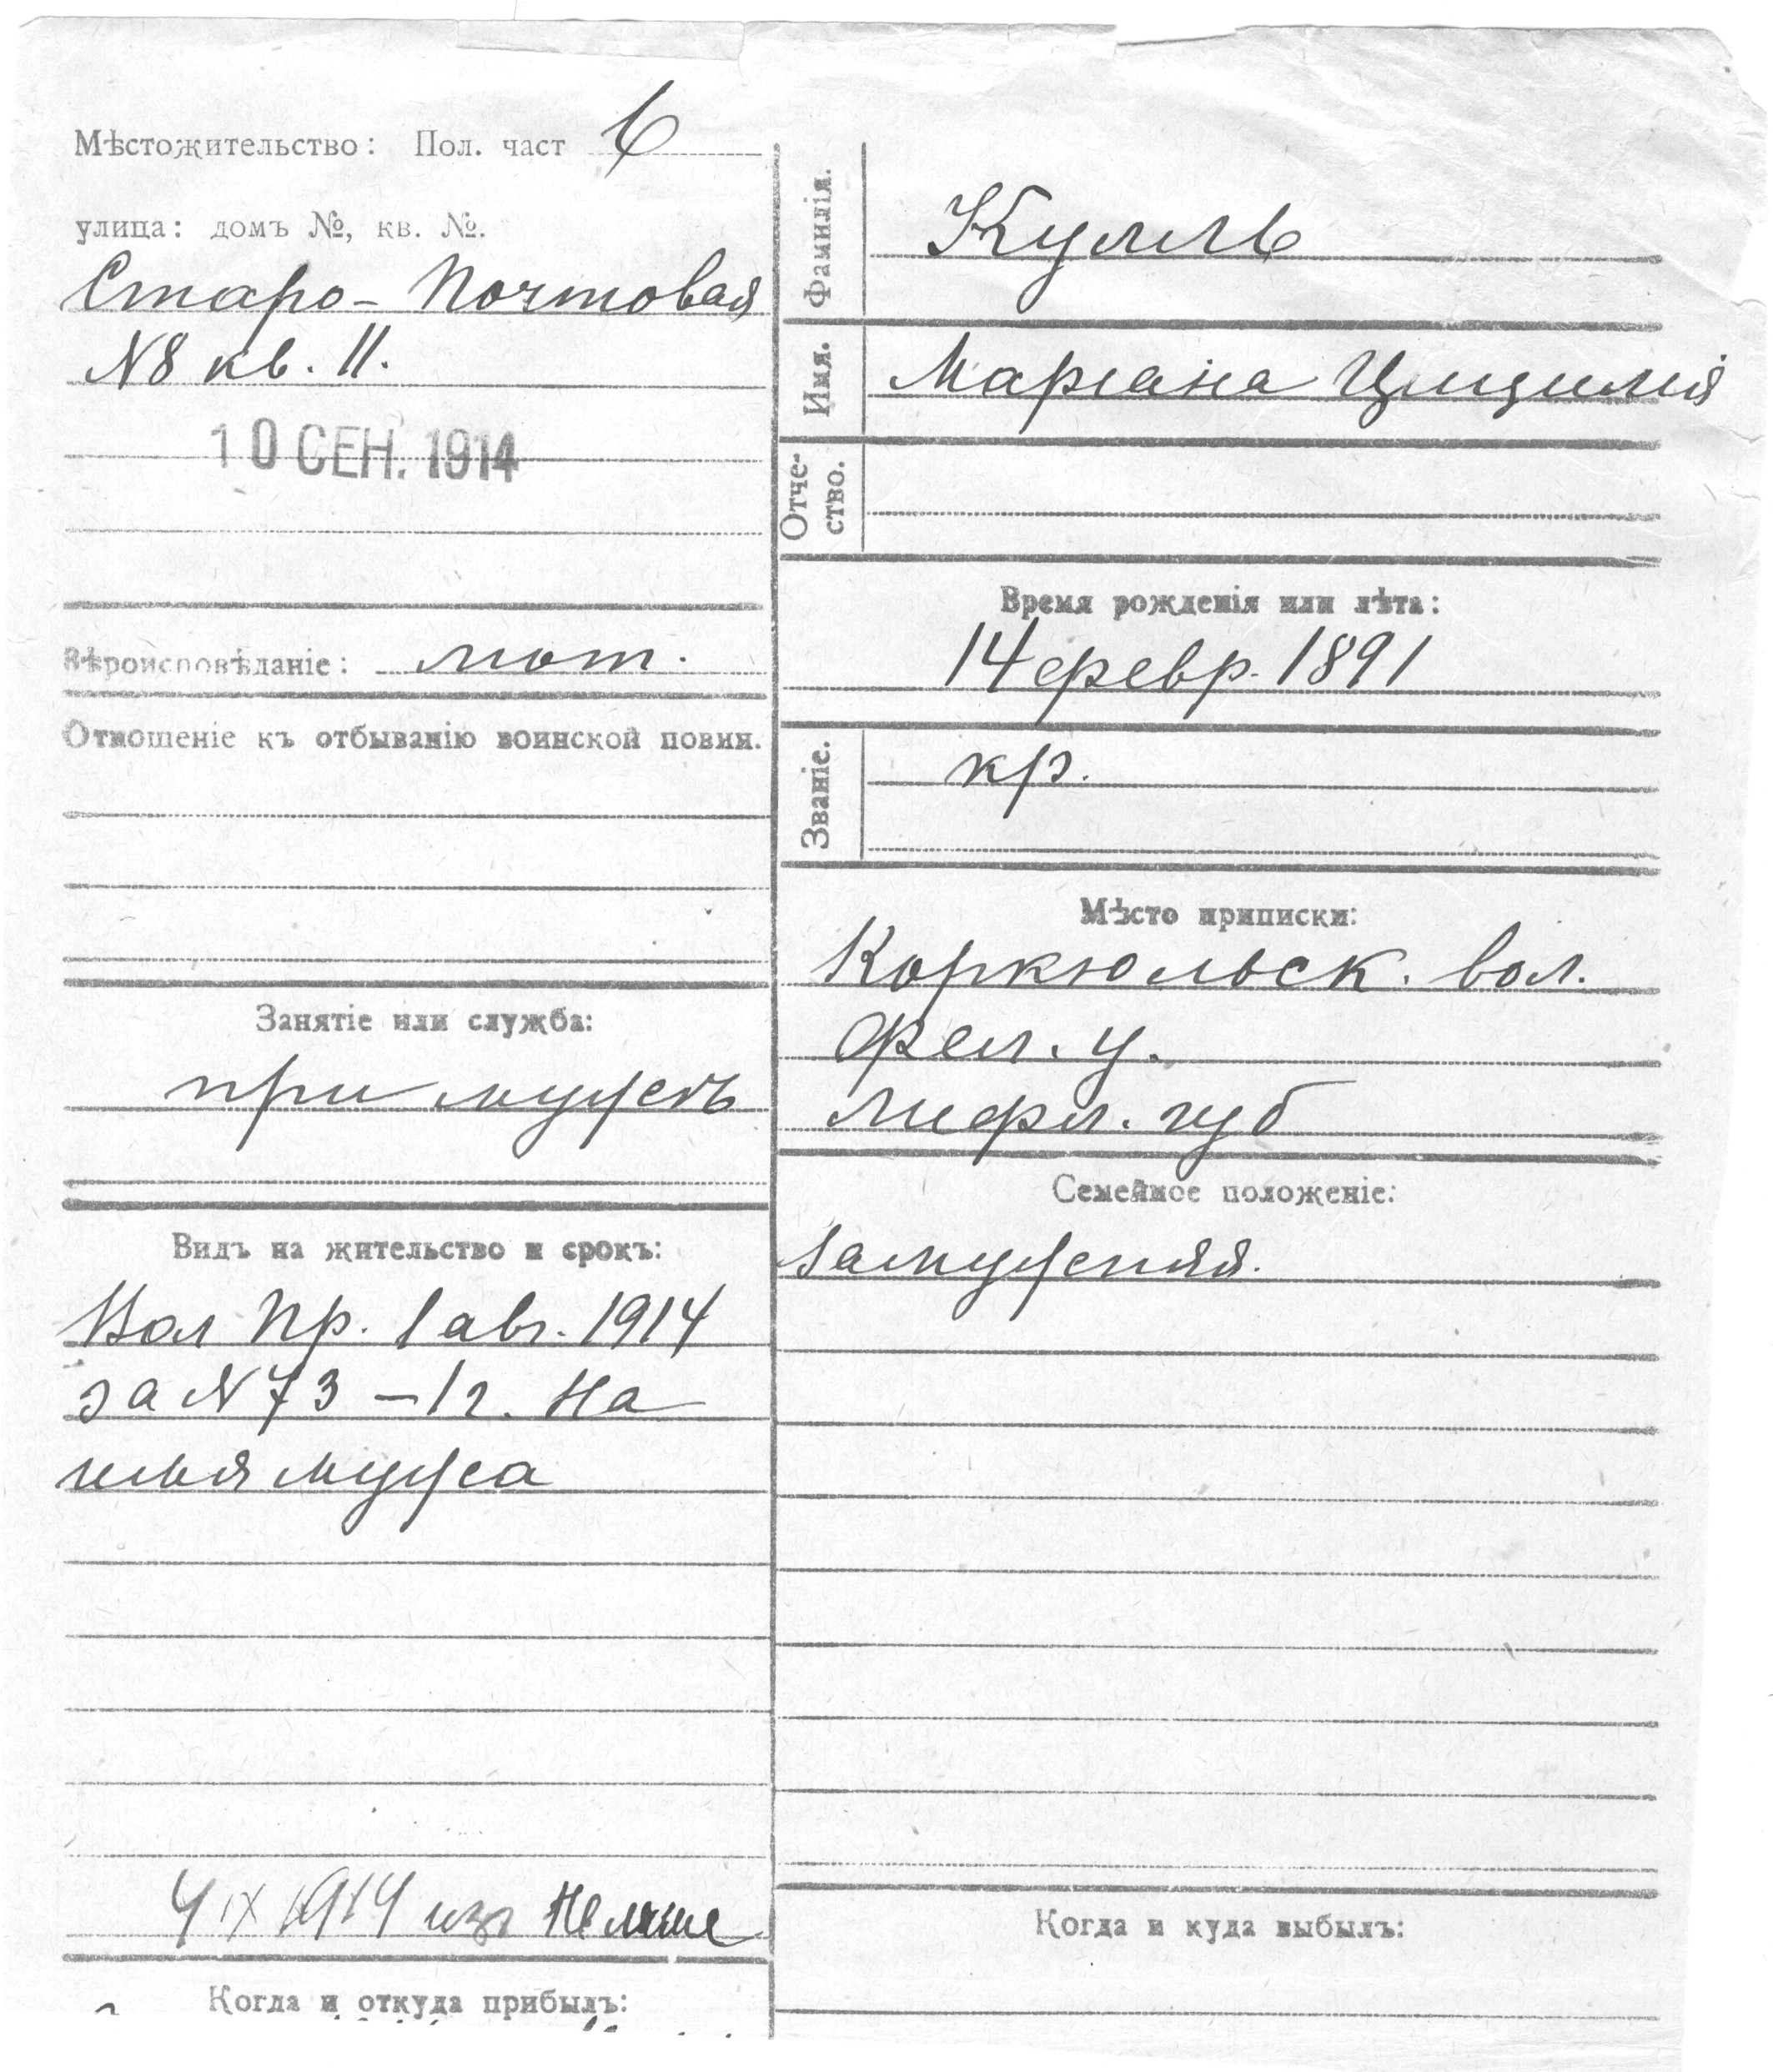 Мѣстожительство: Пол. част 6
улица: домъ №, кв. №.
Старо-Почтовая
№8 кв. 11.
10 СЕН. 1914
Вѣроисповѣданіе: лют.
Отношеніе къ отбыванію воинской повин.
Занятіе или служба:
при мужѣ
Видъ на жительство и срокъ:
Вол Пр. 1 авг. 1914
за №73 – 1 г. на
имя мужа
4 IX 1914 изъ
Когда и откуда прибылъ:
Фамилія. Кулль
Имя. Маріана Цицилія
Отче-
ство.
Время рожденія или лѣта:
14 февр. 1891
Званіе. кр.
Мѣсто приписки:
Коркюльск. вол.
Фел. у.
Лифл. губ
Семейное положеніе:
замужняя.
Когда и куда выбылъ: